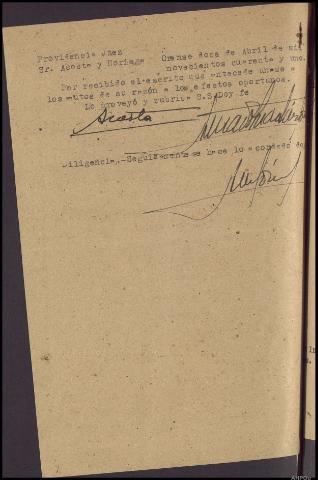 Providencia Juez Orense doce de Abril de mil
Sr. Acosta y Noriega novecientos cuarenta y uno.
Por recibido el escrito que antecede unase a
los autos de su razón a los efectos oportunos.
Lo proveyó y rubrica S.S. Doy fe
Acosta
Diligencia.-Seguidamente se hace lo acordado doy